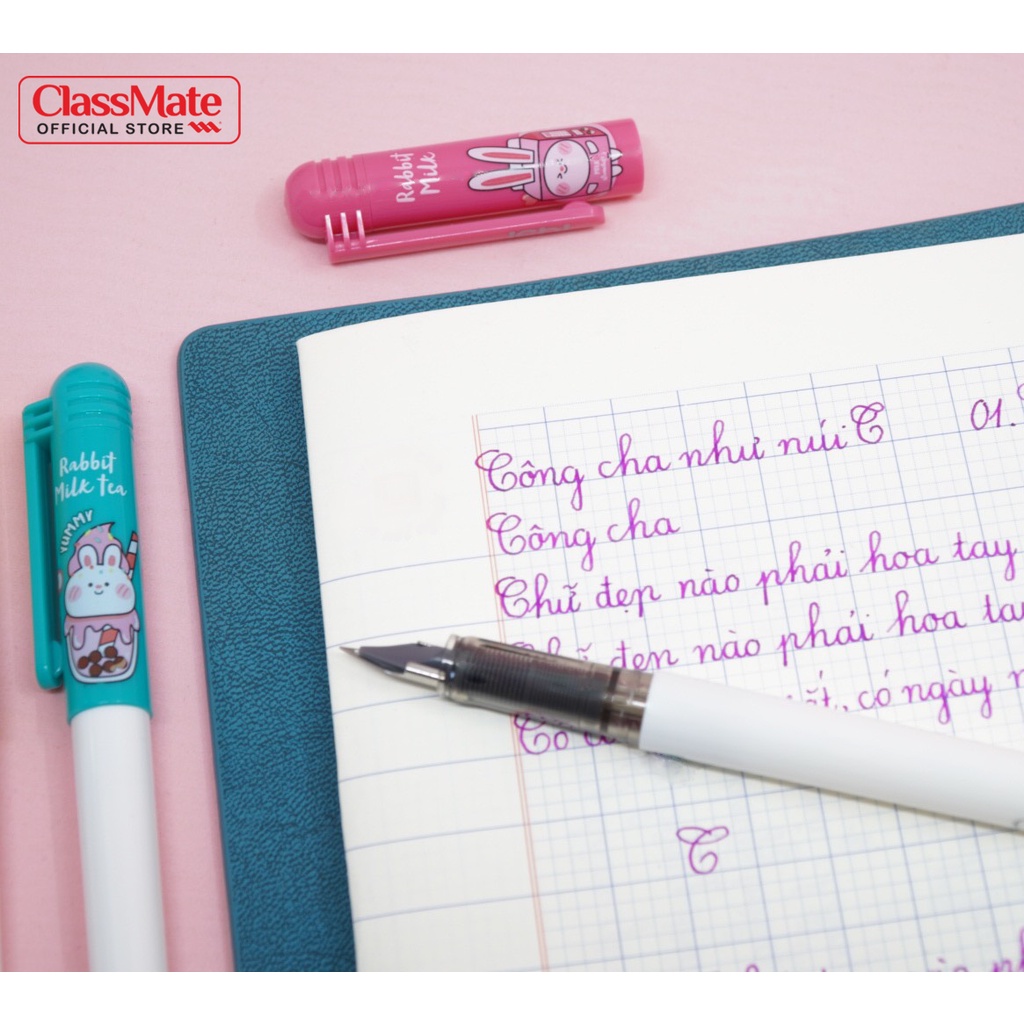 ClassMate
OFFICIAL STORE
Rabbit
Milk
Rabbit
Milk Tea
YUMMY
Công cha như núi C 01.
Công cha
Chữ đẹp nào phải hoa tay
đẹp nào phải hoa tay
có ngày
C